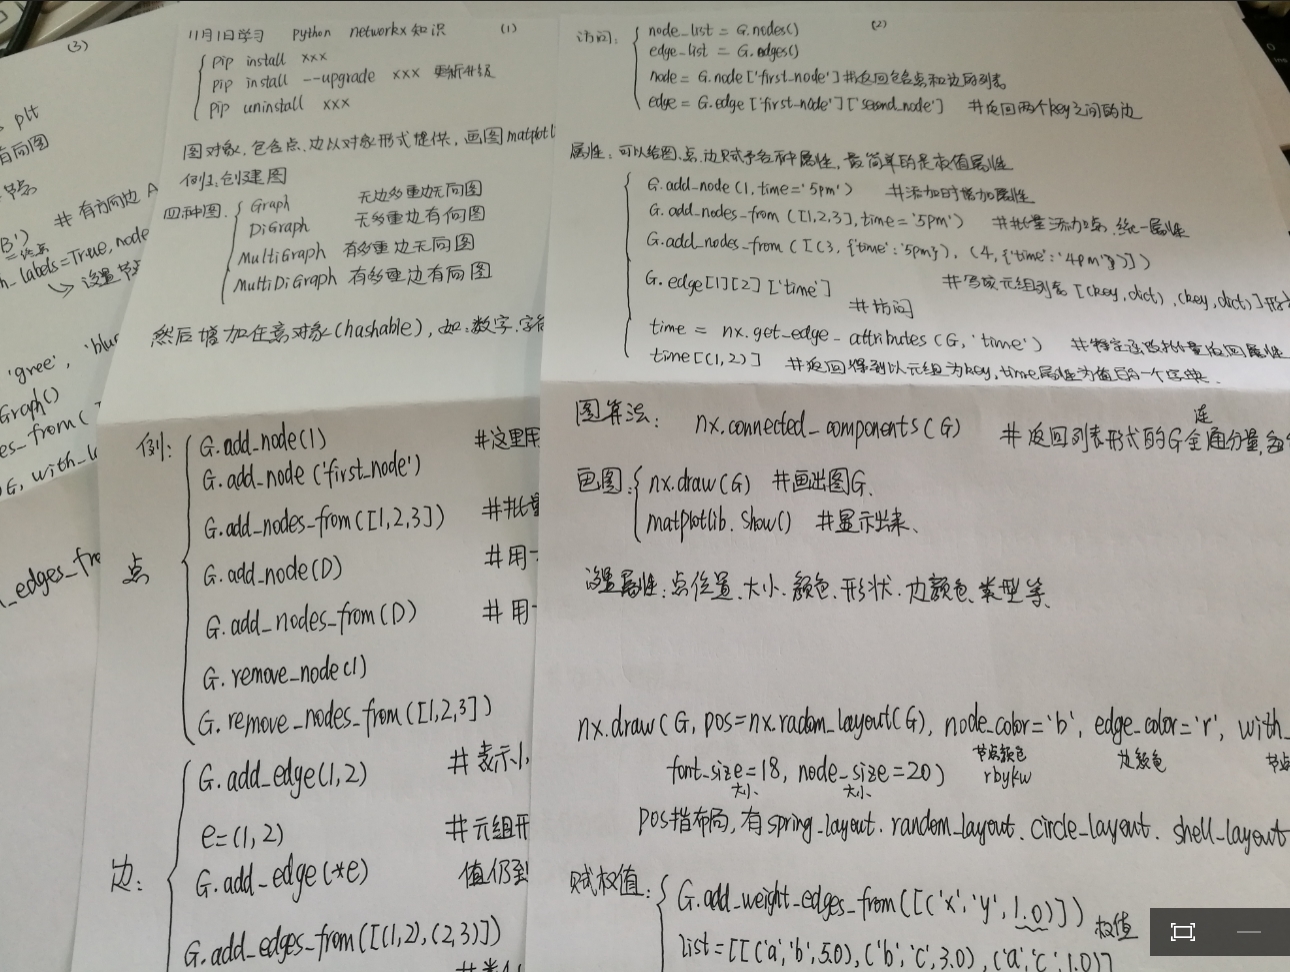 (3)
plt
有向图
节点
# 有方向边 A
B')
h_labels=True, node
设置节点
'gree', 'blu
Graph()
es_from(
G, with_la
_edges_fro
11月1日学习 python networkx知识 (1)
pip install xxx
pip install --upgrade xxx 更新升级
pip uninstall xxx
图对象,包含点、边以对象形式提供,画图matplotl
例1:创建图
四种图. Graph 无边多重边无向图
DiGraph 无多重边有向图
MultiGraph 有多重边无向图
MultiDiGraph 有多重边有向图
然后增加任意对象(hashable),如:数字.字符
例: G.add_node(1) #这里用
G.add_node('first_node')
G.add_nodes_from([1,2,3]) #批量
点 G.add_node(D) #用
G.add_nodes_from(D) #用
G.remove_node(1)
G.remove_nodes_from([1,2,3])
G.add_edge(1,2) #表示1,
e=(1,2) #元组开
边: G.add_edge(*e) 值仍到
G.add_edges_from([(1,2),(2,3)])
(2)
访问: node_list = G.nodes()
edge_list = G.edges()
node = G.node['first_node'] #返回包含点和边的列表
edge = G.edge['first_node']['second_node'] #返回两个key之间的边
属性:可以给图.点.边赋予各种属性,最简单的是权值属性
G.add_node(1,time='5pm') #添加时增加属性
G.add_nodes_from([1,2,3],time='5pm') #批量添加点,统一属性
G.add_nodes_from([(3,{'time':'5pm'}),(4,{'time':'4pm'})])
G.edge[1][2]['time'] #写成元组列表[(key,dict),(key,dict)]形
#访问
time = nx.get_edge_attributes(G,'time') #特定函数批量返回属性
time[(1,2)] #返回得到以元组为key,time属性为值的一个字典.
图算法: nx.connected_components(G) #返回列表形式的G全连通分量,每
画图: nx.draw(G) #画出图G.
matplotlib.show() #显示出来.
设置属性:点位置.大小.颜色.形状.边颜色.类型等.
nx.draw(G, pos=nx.radom_layout(G), node_color='b', edge_color='r', with_
节点颜色 边颜色 节点
font_size=18, node_size=20) rbykw
大小 大小
pos指布局,有spring_layout.random_layout.circle_layout.shell_layout
赋权值: G.add_weight_edges_from([('x','y',1.0)]) 权值
list=[[('a','b',5.0),('b','c',3.0),('a','c',1.0)]